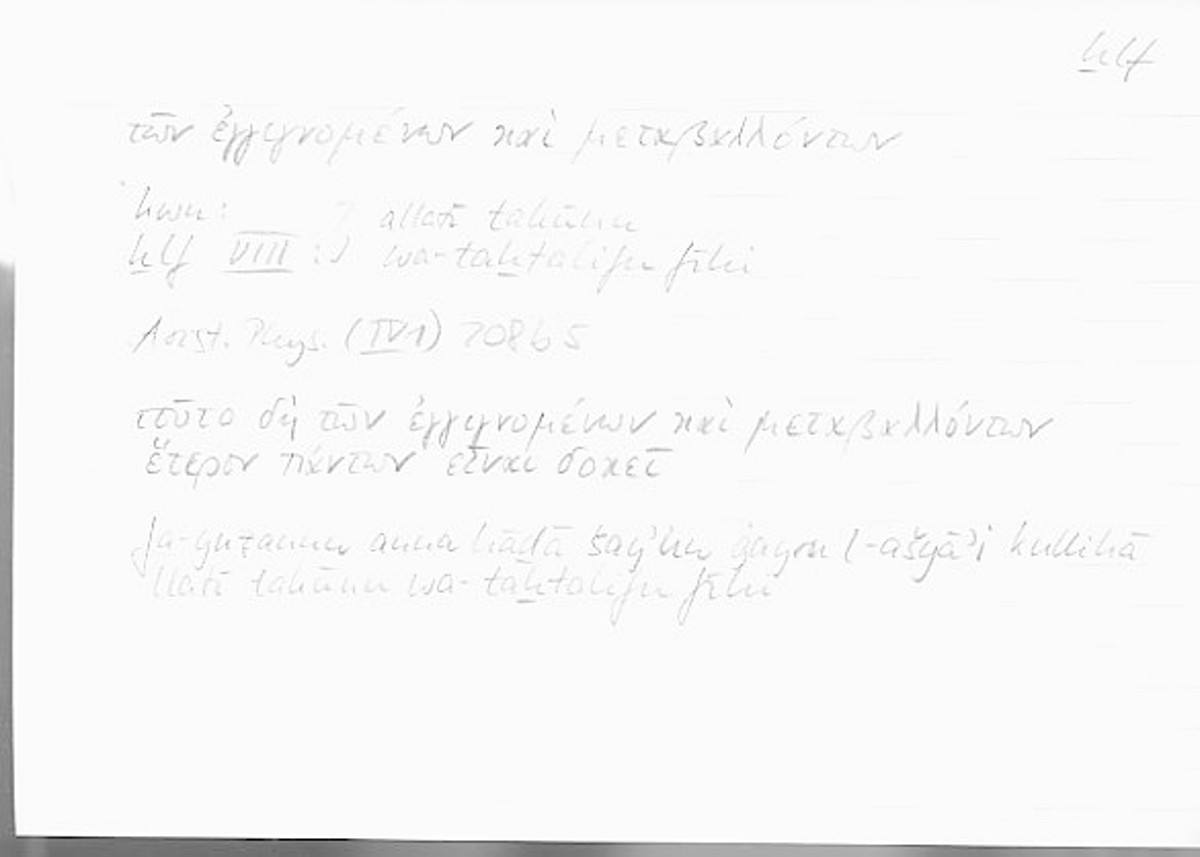 ḫlf
τῶν ἐγγιγνομένων καὶ μεταβαλλόντων
kwn: } allatī takūnu
ḫlf VIII : } wa-taḫtalifu fīhi
Arist. Phys. (IV 1) 208b5
τοῦτο δὴ τῶν ἐγγιγνομένων καὶ μεταβαλλόντων
ἕτερον πάντων εἶναι δοκεῖ
fa-yuẓannu anna hāḏā šayʾun ġayru l-ašyāʾi kullihā
llatī takūnu wa-taḫtalifu fīhi